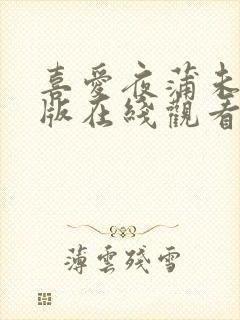 喜愛夜蒲未
版在綫觀看
薄雲殘雪